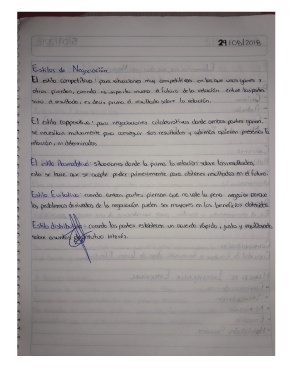 29/08/2018
Estilos de Negociación
El estilo competitivo: para situaciones muy competitivas en las que unos ganan y
otros pierden, cuando no importa mucho el futuro de la relación entre las partes
sino el resultado, es decir prima el resultado sobre la relación.
El estilo cooperativo: para negociaciones colaborativas donde ambas partes ganan,
se necesitan mutuamente para conseguir los resultados y además quieren preservar la
relación,
El estilo Acomodativo: situaciones donde la prima la relación sobre los resultados,
esto se hace que se acepte perder primeramente para obtener resultados en el futuro.
Estilo Evitativo: cuando ambas partes piensan que no vale la pena negociar porque
los problemas derivados de la negociación pueden ser mayores en los beneficios obtenidos.
Estilo distributivo: cuando las partes establecen un acuerdo rápido, justo y equilibrado
sobre asuntos de mutuo interés.